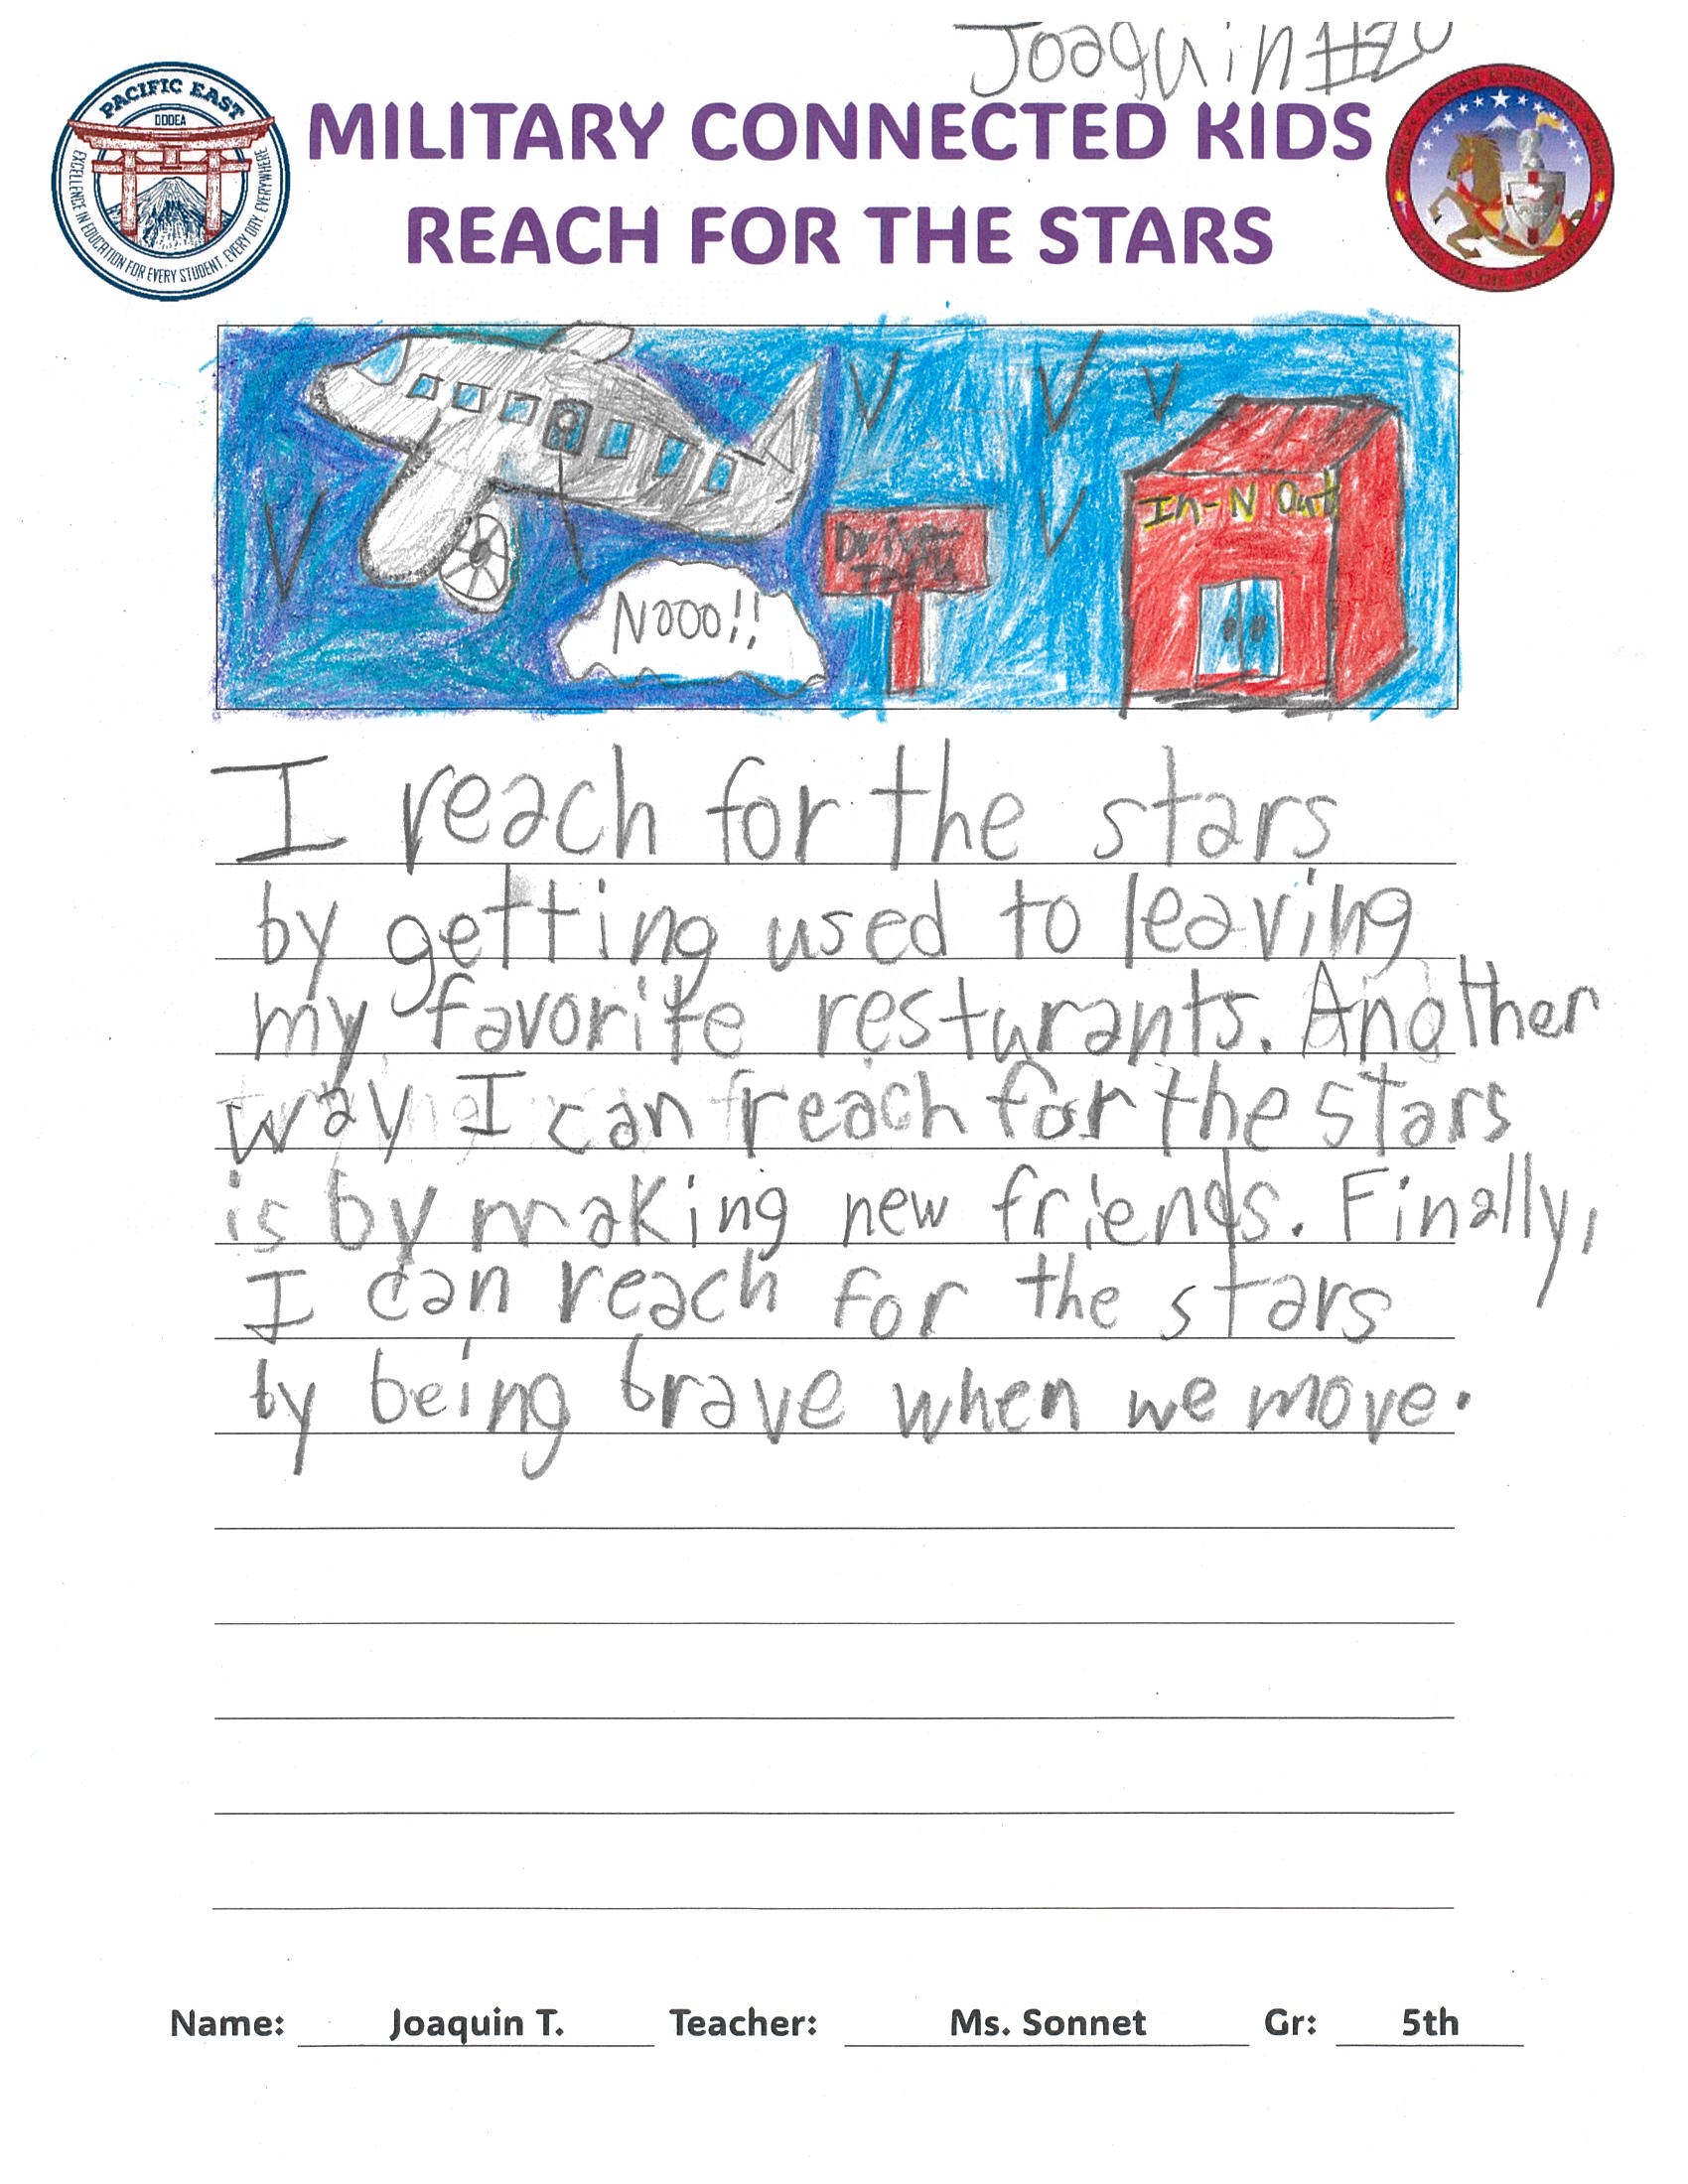 Joaquin #20
PACIFIC EAST
DODEA
EXCELLENCE IN EDUCATION FOR EVERY STUDENT, EVERY DAY, EVERYWHERE
MILITARY CONNECTED KIDS
REACH FOR THE STARS
In-N Out
Drive-
Thru
Nooo!!
I reach for the stars
by getting used to leaving
my favorite resturants. Another
way I can reach for the stars
is by making new friends. Finally,
I can reach for the stars
by being brave when we move.
Name: Joaquin T. Teacher: Ms. Sonnet Gr: 5th